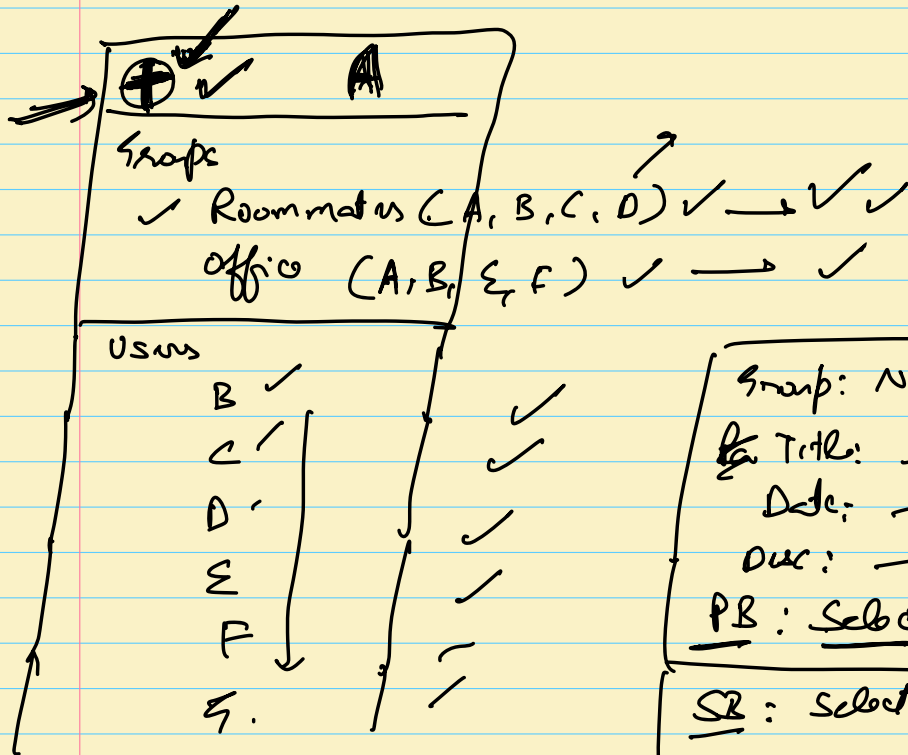 A
Groups
Roommates (A, B, C, D)
Office (A, B, E, F)
Users
B
C
D
E
F
G.
Group: N
Title:
Date:
Desc:
PB : Selec
SB : Select